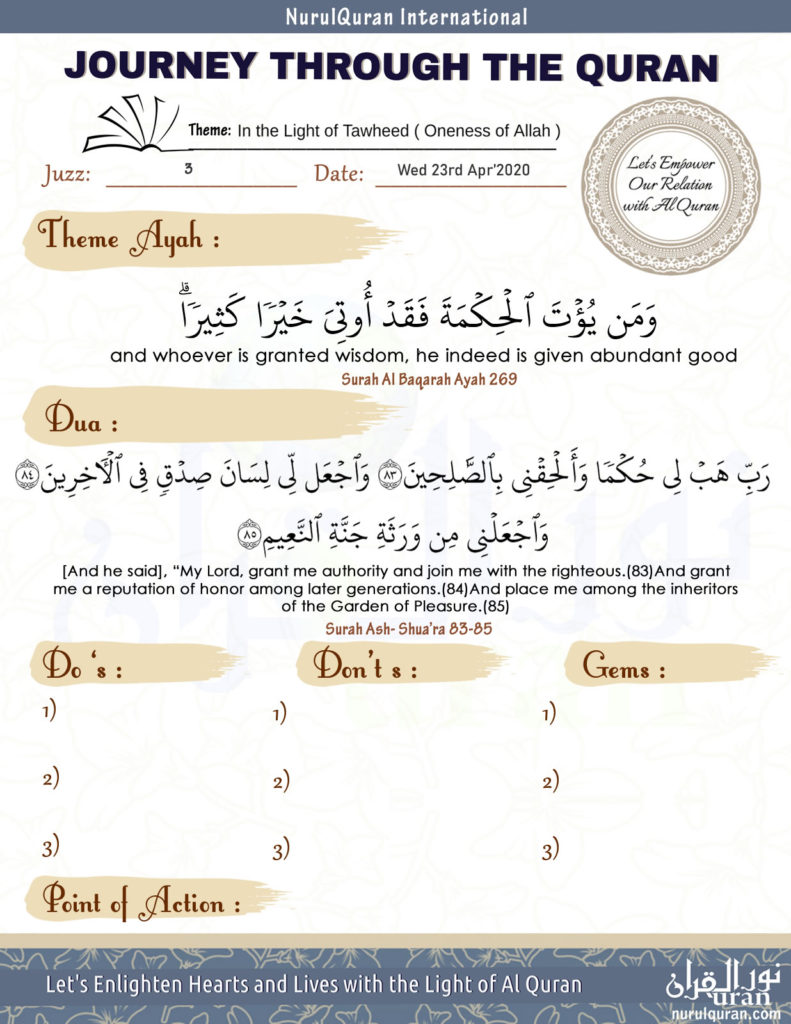 NurulQuran International
JOURNEY THROUGH THE QURAN
Theme: In the Light of Tawheed ( Oneness of Allah )
Juzz: 3 Date: Wed 23rd Apr'2020
Let's Empower
Our Relation
with Al Quran
Theme Ayah :
وَمَن يُؤْتَ ٱلْحِكْمَةَ فَقَدْ أُوتِىَ خَيْرًا كَثِيرًاۗ
and whoever is granted wisdom, he indeed is given abundant good
Surah Al Baqarah Ayah 269
Dua :
رَبِّ هَبْ لِى حُكْمًا وَأَلْحِقْنِى بِٱلصَّٰلِحِينَ ٨٣ وَٱجْعَل لِّى لِسَانَ صِدْقٍ فِى ٱلْـَٔاخِرِينَ ٨٤
وَٱجْعَلْنِى مِن وَرَثَةِ جَنَّةِ ٱلنَّعِيمِ ٨٥
[And he said], “My Lord, grant me authority and join me with the righteous.(83)And grant
me a reputation of honor among later generations.(84)And place me among the inheritors
of the Garden of Pleasure.(85)
Surah Ash- Shua'ra 83-85
Do 's : Don't s : Gems :
1) 1) 1)
2) 2) 2)
3) 3) 3)
Point of Action :
Let's Enlighten Hearts and Lives with the Light of Al Quran
نور القرآن
uran
nurulquran.com